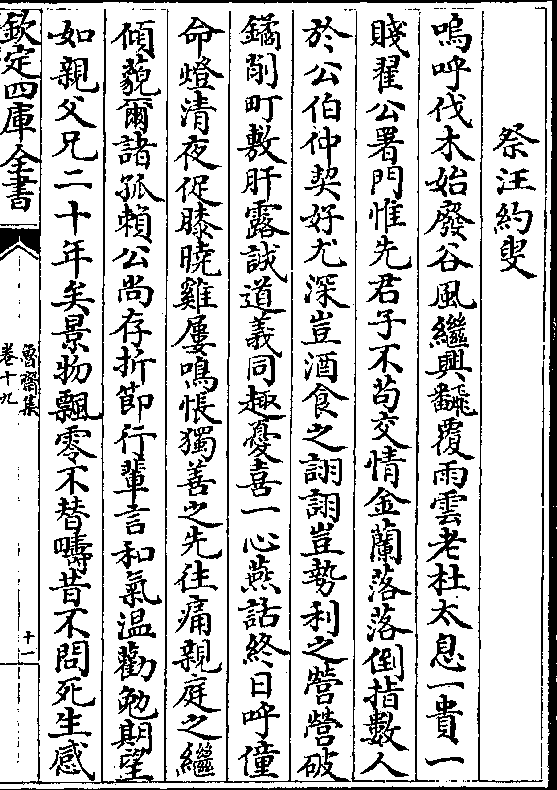 祭汪約叟
嗚呼伐木始廢谷風繼興翻覆雨雲老杜太息一貴一
賤翟公署門惟先君子不苟交情金蘭落落倒指數人
於公伯仲契好尤深豈酒食之詡詡豈勢利之營營破
鐍削町敷肝露誠道義同趣憂喜一心燕話終日呼僮
命燈清夜促膝曉雞屢鳴悵獨善之先往痛親庭之繼
傾藐爾諸孤賴公尚存折節行輩言和氣温勸勉期望
如親父兄二十年矣景物飄零不替疇昔不問死生感
欽定四庫全書
魯齋集
卷十九
十一